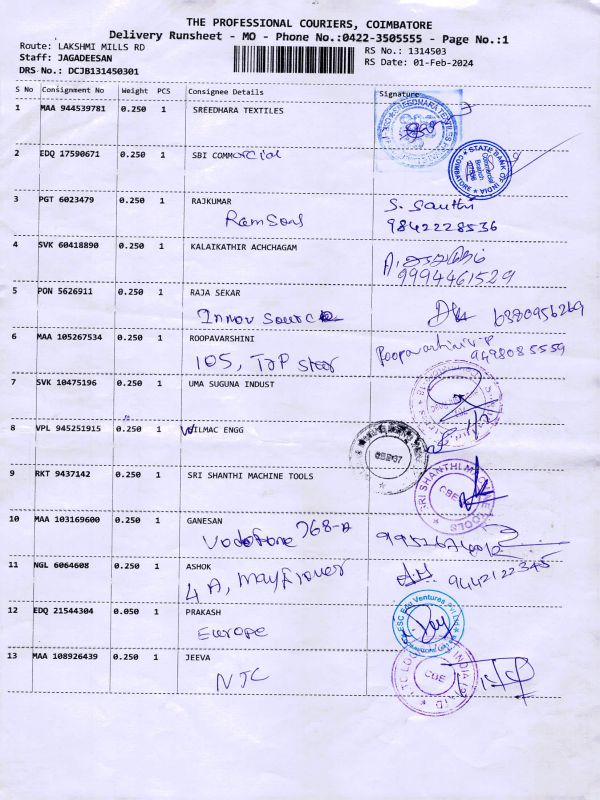 THE PROFESSIONAL COURIERS, COIMBATORE
Delivery Runsheet - MO - Phone No.:0422-3505555 - Page No.:1
Route: LAKSHMI MILLS RD
Staff: JAGADEESAN
DRS No.: DCJB131450301
RS No.: 1314503
RS Date: 01-Feb-2024
S No Consignment No Weight PCS Consignee Details Signature
1 MAA 944539781 0.250 1 SREEDHARA TEXTILES
SREEDHARA TEXTILES
2 EDQ 17590671 0.250 1 SBI COMMercial
STATE BANK OF INDIA
Commercial Branch
COIMBATORE
3 PGT 6023479 0.250 1 RAJKUMAR
Ramsons
S. Santhi
9842228536
4 SVK 60418890 0.250 1 KALAIKATHIR ACHCHAGAM
9994461529
5 PON 5626911 0.250 1 RAJA SEKAR
Innov Source
6380956269
6 MAA 105267534 0.250 1 ROOPAVARSHINI
105, TAP
Roopavarshini.P
9498085559
7 SVK 10475196 0.250 1 UMA SUGUNA INDUST
8 VPL 945251915 0.250 1 WILMAC ENGG
9 RKT 9437142 0.250 1 SRI SHANTHI MACHINE TOOLS
SRI SHANTHI MACHINE TOOLS
CBE
10 MAA 103169600 0.250 1 GANESAN
Vodofone 768-A
11 NGL 6064608 0.250 1 ASHOK
4 A, Mayflower
9442122345
12 EDQ 21544304 0.050 1 PRAKASH
Europe
13 MAA 108926439 0.250 1 JEEVA
NJC
CBE